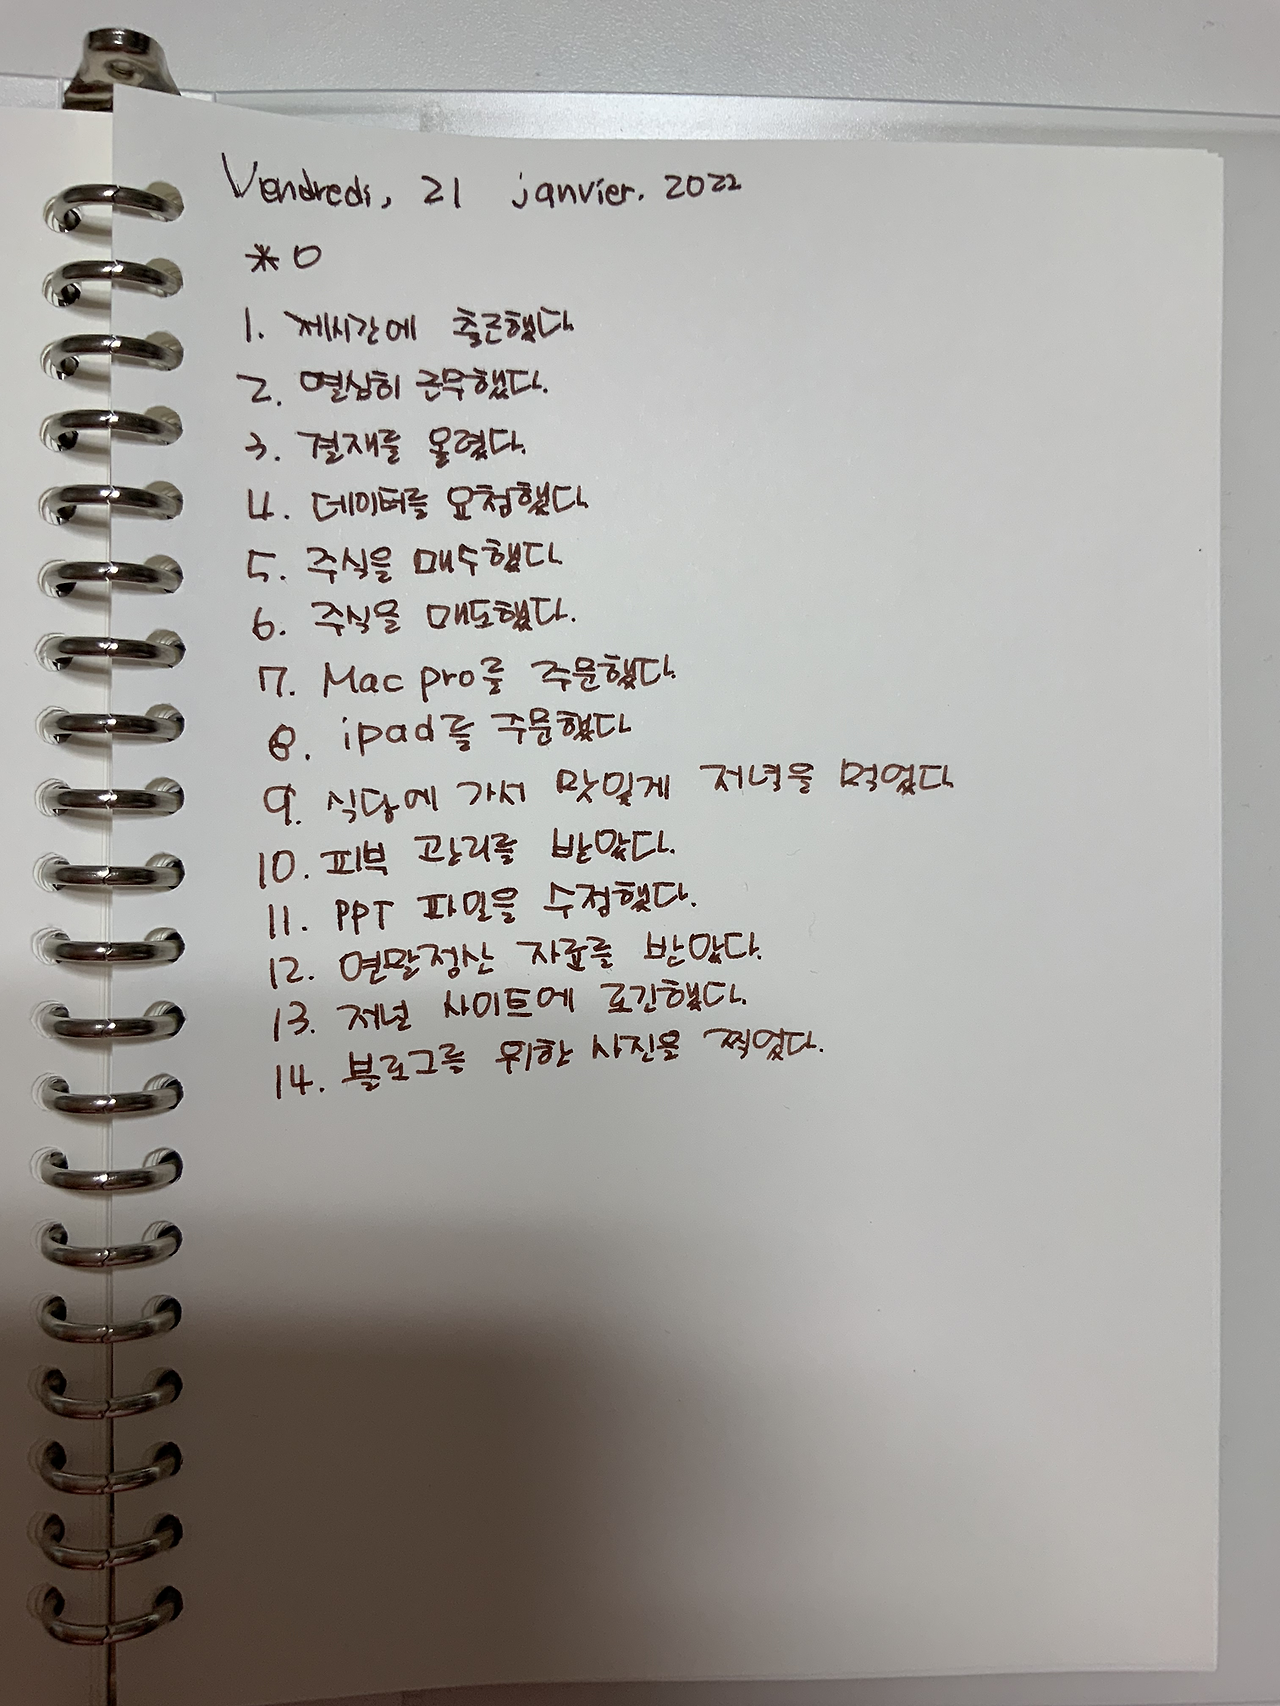 Vendredi, 21 janvier. 2022
* 0
1. 제시간에 출근했다.
2. 열심히 근무했다.
3. 결재를 올렸다.
4. 데이터를 요청했다.
5. 주식을 매수했다.
6. 주식을 매도했다.
7. Mac pro를 주문했다.
8. ipad를 주문했다
9. 식당에 가서 맛있게 저녁을 먹었다
10. 피부 관리를 받았다.
11. PPT 파일을 수정했다.
12. 연말정산 자료를 받았다.
13. 저널 사이트에 로긴했다.
14. 블로그를 위한 사진을 찍었다.